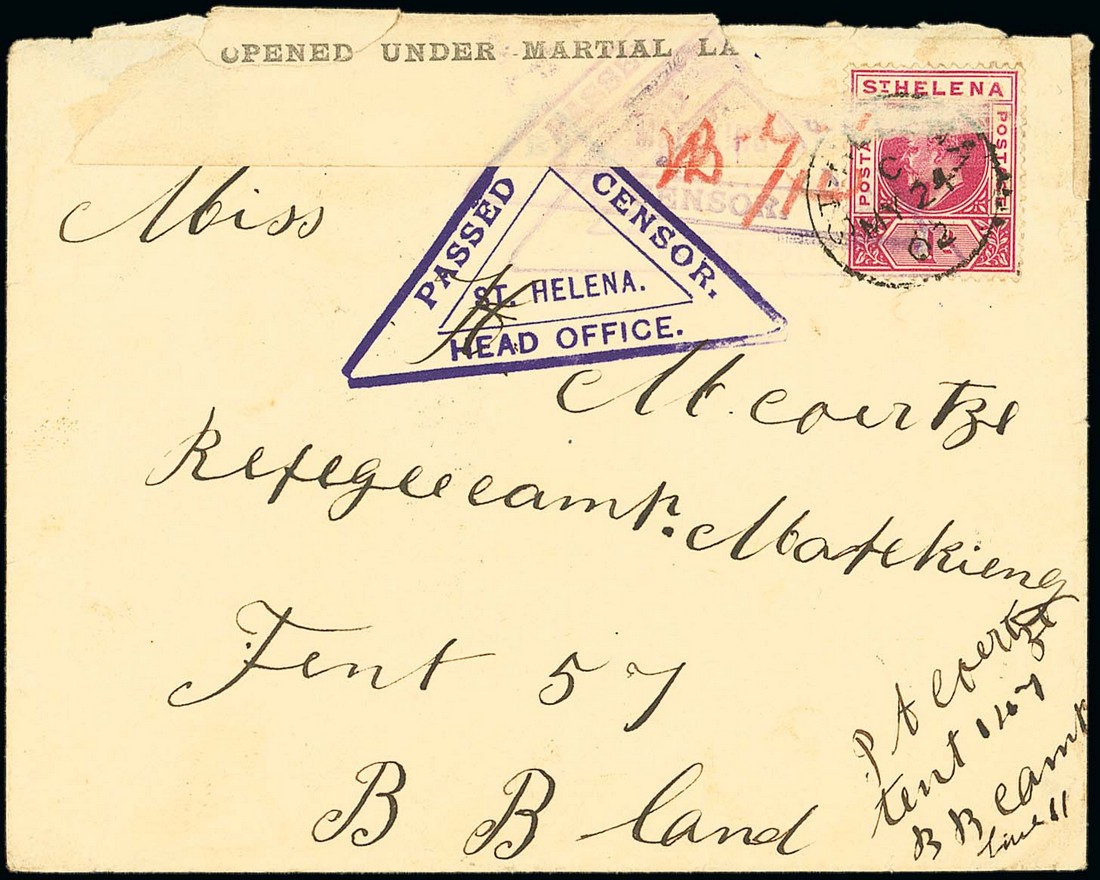 OPENED UNDER MARTIAL LA
ST HELENA
POSTAGE
MY 24
02
PASSED CENSOR.
ST. HELENA.
HEAD OFFICE.
CENSOR.
Miss
M. Coertze
Refegeecamp. Mafekieng
Tent 57
B B land
P A Coertze
tent 1407
B B Camp
line 11